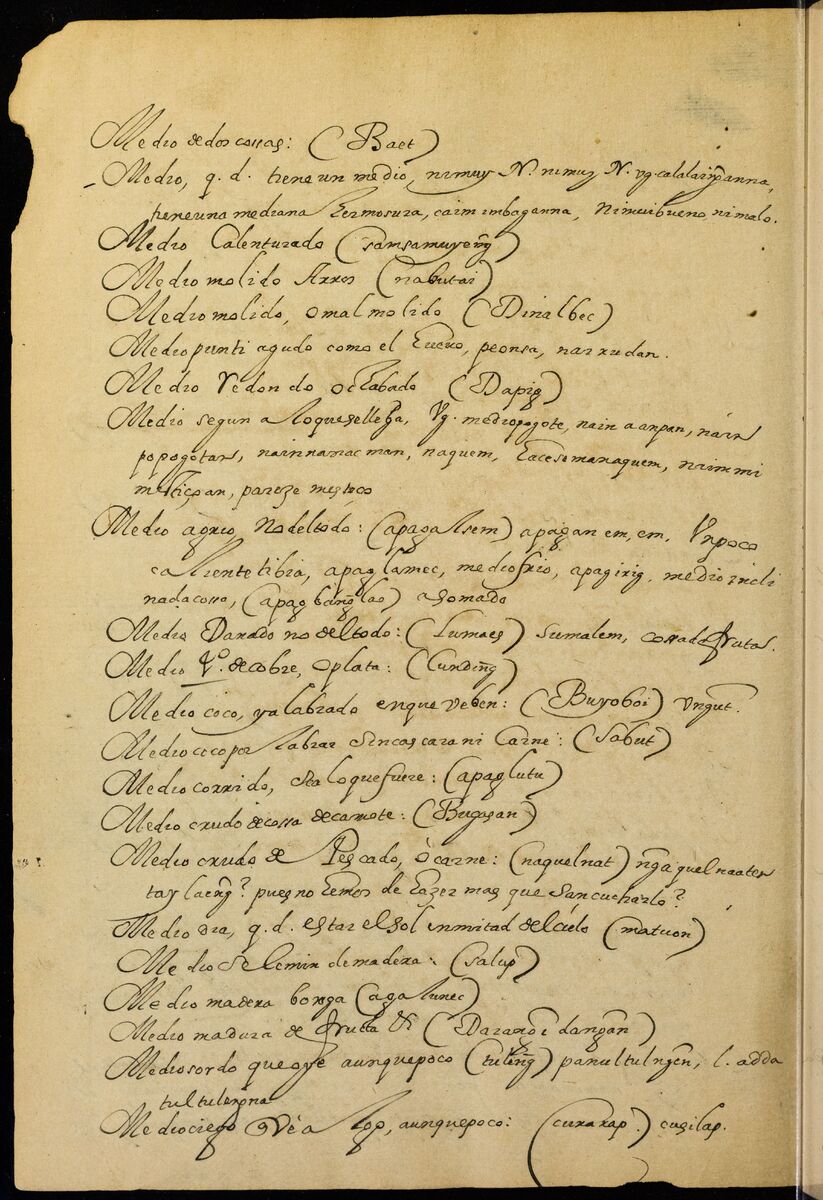 Medio de dos cossas: (Baet)
Medio, q. d. tiene un medio, ni muy N. ni muy N. vg. calalaingpanna,
tiene una mediana hermosura, caimimbaganna, Ni mui bueno ni malo.
Medio Calenturado (samsamuyeng)
Medio molido Arros (nabutai)
Medio molido, o mal molido (Dinalbec)
Medio punti agudo como el huevo, peonsa, narrudan.
Medio redondo ochabado (Dapig)
Medio segun a lo que se llega, Vg. medio pogote, nain aanpan, nain
popogotan, nainnanac man, naquem, hacese manaquem, nainmi
misticoan, pareze mestoco
Medio agrio, no del todo: (apagalsem) apagan em, em, Un poco
caliente tibia, apaglamec, medio frio, apagirig, medio incli
nada cossa, (apagbanglas) asomado
Medio Danado no del todo: (Lumaes) sumalem, cossada frutas.
Medio Rº. de cobre, o plata: (Cunding)
Medio coco, ya labrado en que veben: (Buyoboi) Ungut.
Medio coco por labrar sin cascara ni Carne: (Sabut)
Medio corrido, sea lo que fuere: (apaglutu)
Medio crudo de cossa de camote: (Bugasan)
Medio crudo de Pescado, ò carne: (naquelnat) nga quel naaten
tay laeng? pues no hemos de hazer mas que sancucharlo?
Medio dia, q. d. estar el sol en mitad del cielo (matuon)
Medio selemin de madera: (salup)
Medio madera bonga (agalunec)
Medio madura de frutta &c (Darangidangan)
Medio sordo que oye aunque poco (tuleng) panultulngen, l. adda
tultulengna
Medio ciego q ve a lgo, aunque poco: (cura rap.) cusilap.